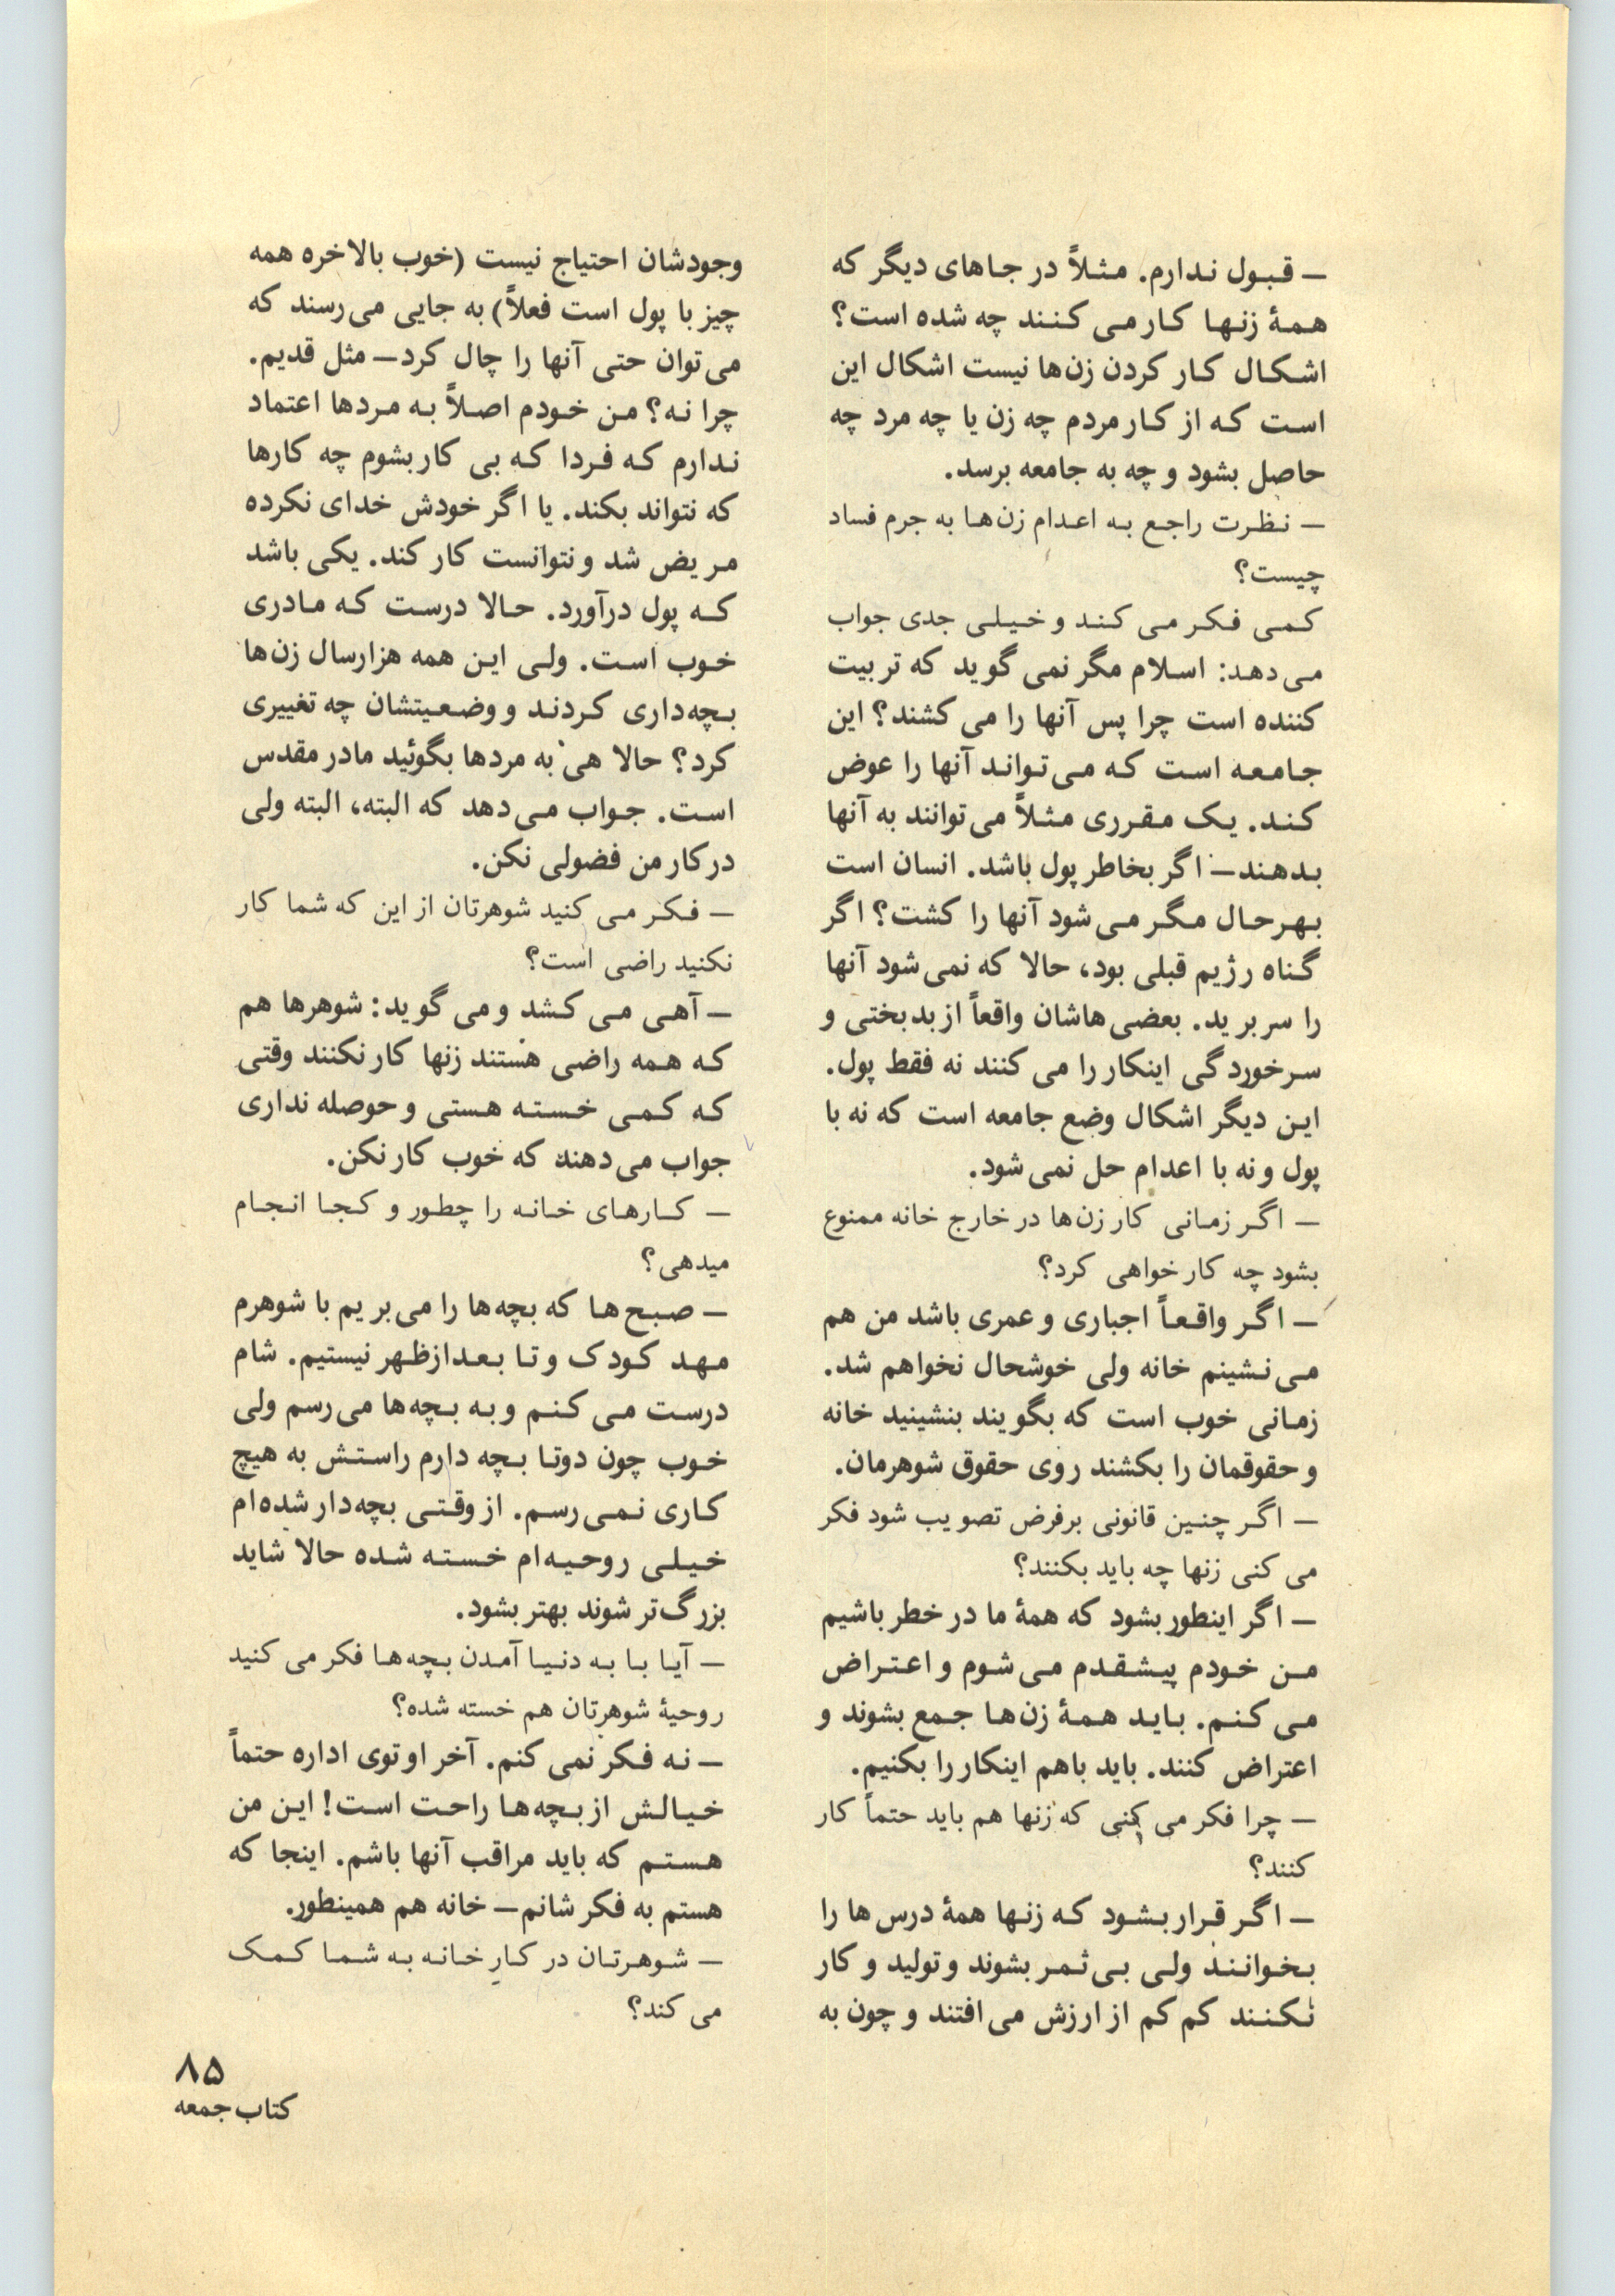 — قبول ندارم. مثلاً در جاهای دیگر که
همهٔ زنها کار می کنند چه شده است؟
اشکال کار کردن زن‌ها نیست اشکال این
است که از کار مردم چه زن یا چه مرد چه
حاصل بشود و چه به جامعه برسد.
— نظرت راجع به اعدام زن‌ها به جرم فساد
چیست؟
کمی فکر می کند و خیلی جدی جواب
می‌دهد: اسلام مگر نمی گوید که تربیت
کننده است چرا پس آنها را می کشند؟ این
جامعه است که می‌تواند آنها را عوض
کند. یک مقرری مثلاً می‌توانند به آنها
بدهند— اگر بخاطر پول باشد. انسان است
بهرحال مگر می‌شود آنها را کشت؟ اگر
گناه رژیم قبلی بود، حالا که نمی‌شود آنها
را سر برید. بعضی‌هاشان واقعاً از بدبختی و
سرخوردگی اینکار را می کنند نه فقط پول.
این دیگر اشکال وضع جامعه است که نه با
پول و نه با اعدام حل نمی‌شود.
— اگر زمانی کار زن‌ها در خارج خانه ممنوع
بشود چه کار خواهی کرد؟
— اگر واقعاً اجباری و عمری باشد من هم
می‌نشینم خانه ولی خوشحال نخواهم شد.
زمانی خوب است که بگویند بنشینید خانه
و حقوقمان را بکشند روی حقوق شوهرمان.
— اگر چنین قانونی برفرض تصویب شود فکر
می کنی زنها چه باید بکنند؟
— اگر اینطور بشود که همهٔ ما در خطر باشیم
من خودم پیشقدم می‌شوم و اعتراض
می کنم. باید همهٔ زن‌ها جمع بشوند و
اعتراض کنند. باید باهم اینکار را بکنیم.
— چرا فکر می کنی که زنها هم باید حتماً کار
کنند؟
— اگر قرار بشود که زنها همهٔ درس ها را
بخوانند ولی بی‌ثمر بشوند و تولید و کار
نکنند کم کم از ارزش می‌افتند و چون به
وجودشان احتیاج نیست (خوب بالاخره همه
چیز با پول است فعلاً) به جایی می‌رسند که
می‌توان حتی آنها را چال کرد— مثل قدیم.
چرا نه؟ من خودم اصلاً به مردها اعتماد
ندارم که فردا که بی کار بشوم چه کارها
که نتواند بکند. یا اگر خودش خدای نکرده
مریض شد و نتوانست کار کند. یکی باشد
که پول درآورد. حالا درست که مادری
خوب است. ولی این همه هزارسال زن‌ها
بچه‌داری کردند و وضعیتشان چه تغییری
کرد؟ حالا هی به مردها بگوئید مادر مقدس
است. جواب می‌دهد که البته، البته ولی
در کار من فضولی نکن.
— فکر می کنید شوهرتان از این که شما کار
نکنید راضی است؟
— آهی می کشد و می گوید: شوهرها هم
که همه راضی هستند زنها کار نکنند وقتی
که کمی خسته هستی و حوصله نداری
جواب می‌دهند که خوب کار نکن.
— کارهای خانه را چطور و کجا انجام
میدهی؟
— صبح‌ها که بچه‌ها را می‌بریم با شوهرم
مهد کودک و تا بعدازظهر نیستیم. شام
درست می کنم و به بچه‌ها می‌رسم ولی
خوب چون دوتا بچه دارم راستش به هیچ
کاری نمی‌رسم. از وقتی بچه‌دار شده‌ام
خیلی روحیه‌ام خسته شده حالا شاید
بزرگ‌تر شوند بهتر بشود.
— آیا با به دنیا آمدن بچه‌ها فکر می کنید
روحیهٔ شوهرتان هم خسته شده؟
— نه فکر نمی کنم. آخر او توی اداره حتماً
خیالش از بچه‌ها راحت است! این من
هستم که باید مراقب آنها باشم. اینجا که
هستم به فکر شانم— خانه هم همینطور.
— شوهرتان در کارِ خانه به شما کمک
می کند؟
۸۵
کتاب جمعه